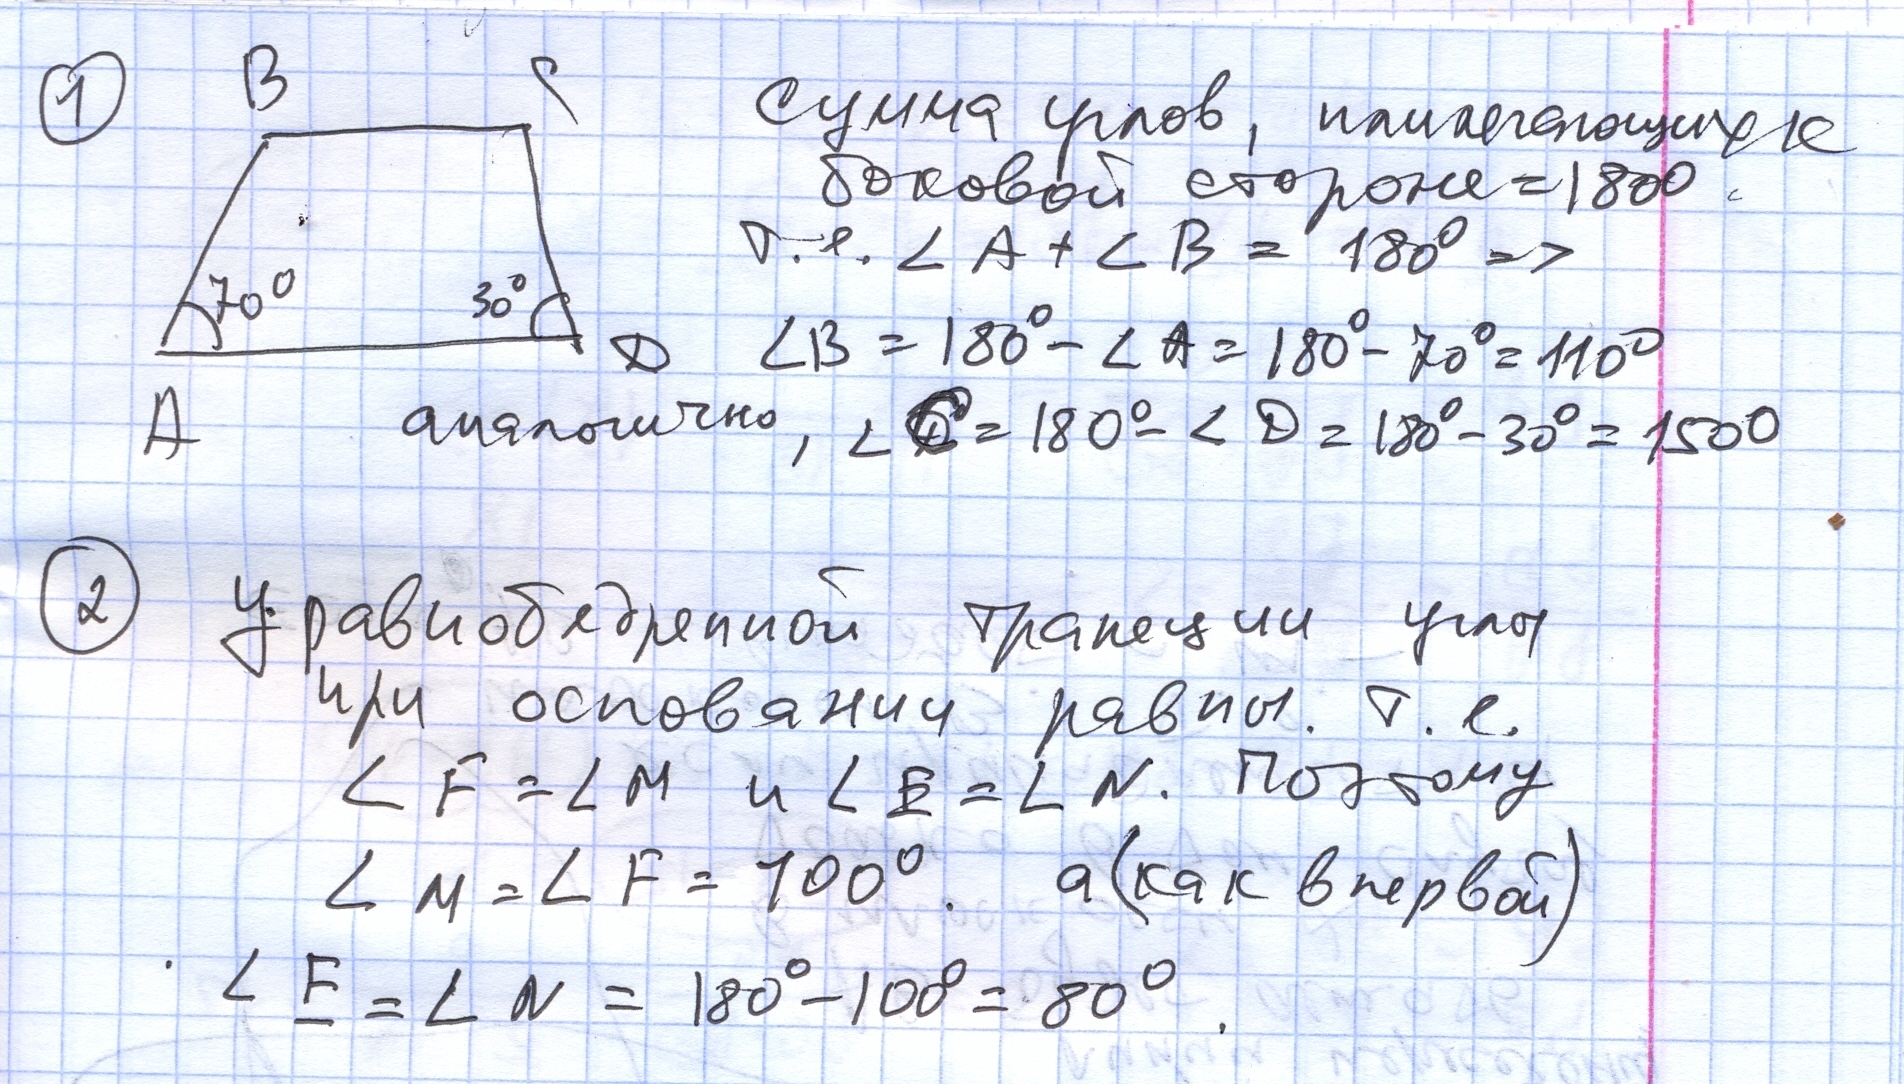 1
B C
Сумма углов, прилегающих к
боковой стороне = 180°.
т.е. ∠A + ∠B = 180° =>
70° 30°
∠B = 180° - ∠A = 180° - 70° = 110°
A D
аналогично, ∠C = 180° - ∠D = 180° - 30° = 150°
2 У равнобедренной трапеции углы
при основании равны. т.е.
∠F = ∠M и ∠E = ∠N. Поэтому
∠M = ∠F = 100°. а (как в первой)
∠E = ∠N = 180° - 100° = 80°.